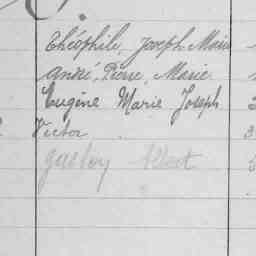 Théophile, Joseph Marie
André, Pierre, Marie
Eugène Marie Joseph
Victor
Albert